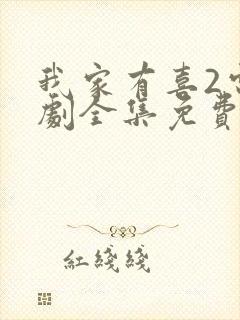 我家有喜2
劇全集免費
紅綫綫